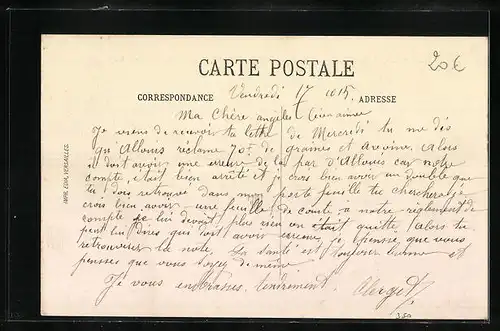 20€
CARTE POSTALE
CORRESPONDANCE Vendredi 17 1915 ADRESSE
Ma Chère
Je viens de recevoir ta lettre de Mercredi tu me dis
qu'Allouis réclame 70f de graines et Avoine. Alors
il doit avoir une erreur de la par d'Allouis car notre
compte était bien arrêté et je crois bien avoir un double que
tu dois retrouvé dans mon porte feuille tu chercheras je
crois bien avoir une feuille de conte a notre règlement de
compte je lui devait plus rien on était quitte, alors tu
peut lui dires qui doit avoir erreur, je pense que vous
retrouverer la note. La santé est toujours bonne et
penses que vous soyez de même.
Je vous embrasses tendrement.
IMP. EDIA, VERSAILLES.